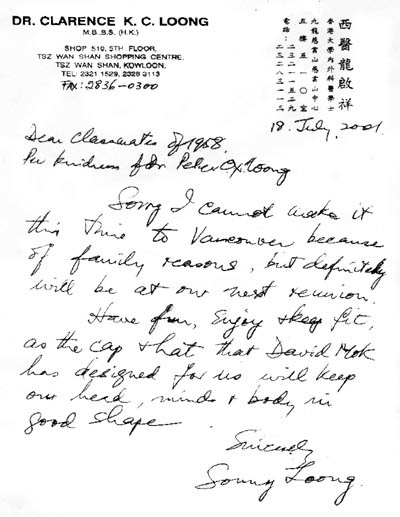 DR. CLARENCE K. C. LOONG
M.B.,B.S. (H.K.)
SHOP 519, 5TH FLOOR,
TSZ WAN SHAN SHOPPING CENTRE,
TSZ WAN SHAN, KOWLOON.
TEL: 2321 1529, 2328 9113
FAX: 2836-0300
西醫龍啟祥
香港大學內外科醫學士
九龍慈雲山慈雲山中心
五樓五一〇室
18. July, 2001
Dear Classmates of 1958.
Per kindness of Dr Peter Loong
Sorry I cannot make it
this time to Vancouver because
of family reasons, but definitely
will be at our next reunion.
Have fun, Enjoy & keep fit,
as the cap & hat that David Mok
has designed for us will keep
our head, minds & body in
good shape
Sincerely
Sonny Loong.